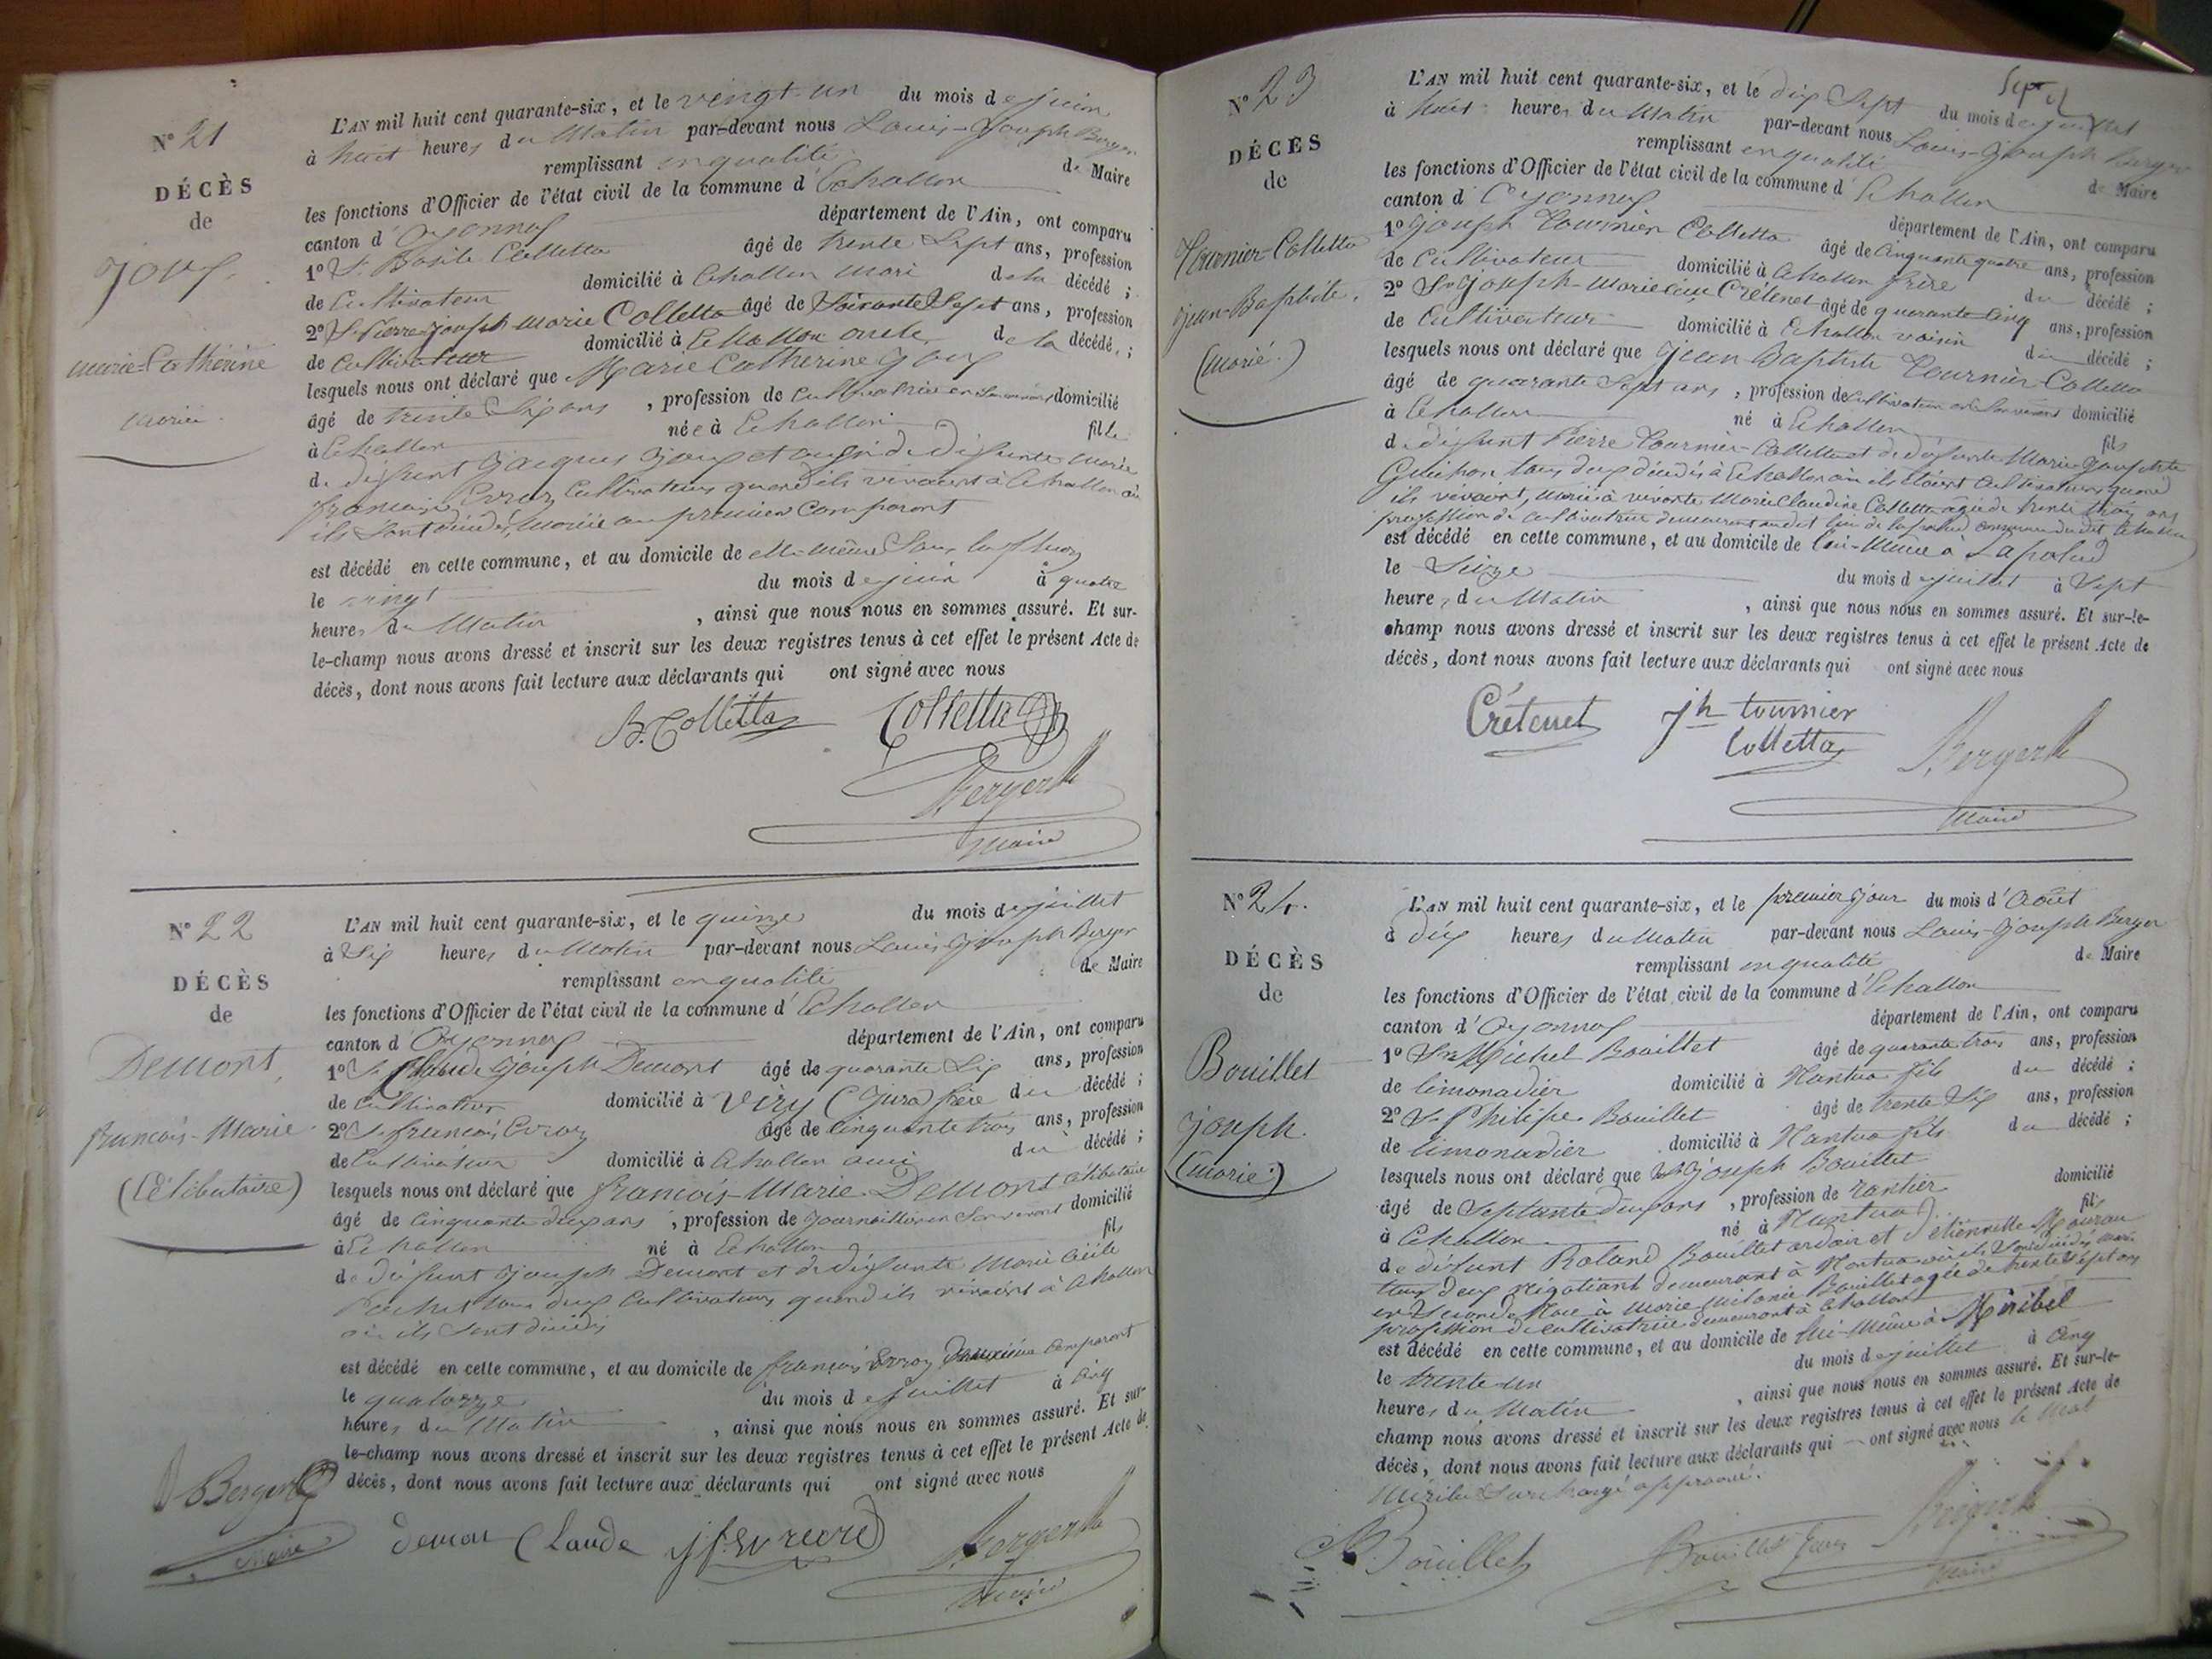 N° 21
DÉCÈS
de
Joux
Marie-Catherine
mariée
L'AN mil huit cent quarante-six, et le vingt un du mois de juin
à huit heures du Matin par-devant nous Louis-Joseph Berger
remplissant en qualité de Maire
les fonctions d'Officier de l'état civil de la commune d'Echallon
canton d'Oyonnax département de l'Ain, ont comparu
1° Sr Basile Colletta âgé de trente Sept ans, profession
de Cultivateur domicilié à Echallon Mari de la décédé ;
2° Sr Pierre-joseph-Marie Colletta âgé de Soixante Sept ans, profession
de Cultivateur domicilié à Echallon oncle de la décédé, ;
lesquels nous ont déclaré que Marie Catherine Joux
âgé de trente Six ans, profession de Cultivatrice en Son vivant domicilié
à Echallon née à Echallon fille
de défunt Jacques Joux et aussi de défunte Marie
françoise Evroz Cultivateurs quand ils vivaient à Echallon où
ils Sont décédés, Mariée au premier Comparant
est décédé en cette commune, et au domicile de elle-même
le vingt du mois de juin à quatre
heures du Matin, ainsi que nous nous en sommes assuré. Et sur-
le-champ nous avons dressé et inscrit sur les deux registres tenus à cet effet le présent Acte de
décès, dont nous avons fait lecture aux déclarants qui ont signé avec nous
B. Colletta Colletta
Berger
Maire
N° 22
DÉCÈS
de
Demont,
françois-Marie
(Célibataire)
L'AN mil huit cent quarante-six, et le quinze du mois de juillet
à Six heures du Matin par-devant nous Louis Joseph Berger
remplissant en qualité de Maire
les fonctions d'Officier de l'état civil de la commune d'Echallon
canton d'Oyonnax département de l'Ain, ont comparu
1° Sr Claude Joseph Demont âgé de quarante Six ans, profession
de Cultivateur domicilié à Viry (Jura) frère du décédé ;
2° Sr françois Evroz âgé de Cinquante trois ans, profession
de Cultivateur domicilié à Echallon ami du décédé ;
lesquels nous ont déclaré que françois-Marie Demont Célibataire
âgé de Cinquante deux ans, profession de Journaillier en Son vivant domicilié
à Echallon né à Echallon fils
de défunt Joseph Demont et de défunte Marie Cécile
tous deux Cultivateurs quand ils vivaient à Echallon
où ils Sont décédés
est décédé en cette commune, et au domicile de françois Evroz Deuxième Comparant
le quatorze du mois de juillet à Cinq
heures du Matin, ainsi que nous nous en sommes assuré. Et sur-
le-champ nous avons dressé et inscrit sur les deux registres tenus à cet effet le présent Acte de
décès, dont nous avons fait lecture aux déclarants qui ont signé avec nous
Berger
Maire
demon Claude
Berger
Maire
N° 23
DÉCÈS
de
Tournier-Colletta
Jean-Baptiste.
(Marié.)
L'AN mil huit cent quarante-six, et le dix Sept du mois de juillet
à huit heures du Matin par-devant nous Louis-Joseph Berger
remplissant en qualité de Maire
les fonctions d'Officier de l'état civil de la commune d'Echallon
canton d'Oyonnax département de l'Ain, ont comparu
1° Joseph Tournier Colletta âgé de Cinquante quatre ans, profession
de Cultivateur domicilié à Echallon frère du décédé ;
2° Sr Joseph-Marie Crétenet âgé de quarante Cinq ans, profession
de Cultivateur domicilié à Echallon voisin du décédé ;
lesquels nous ont déclaré que Jean Baptiste Tournier-Colletta
âgé de quarante Sept ans, profession de Cultivateur en Son vivant domicilié
à Echallon né à Echallon fils
de défunt Pierre Tournier-Colletta et de défunte Marie Josephte
tous deux décédés à Echallon où ils étaient Cultivateurs quand
ils vivaient, Marié à vivante Marie Claudine Colletta âgée de trente trois ans
profession de Cultivatrice demeurant audit lieu de Lapalud commune dudit Echallon
est décédé en cette commune, et au domicile de lui-Même à Lapalud
le Seize du mois de juillet à Sept
heures du Matin, ainsi que nous nous en sommes assuré. Et sur-le-
champ nous avons dressé et inscrit sur les deux registres tenus à cet effet le présent Acte de
décès, dont nous avons fait lecture aux déclarants qui ont signé avec nous
Crétenet jh tournier
Colletta
Berger
Maire
N° 24.
DÉCÈS
de
Bouillet
Joseph.
(Marié.)
L'AN mil huit cent quarante-six, et le premier Jour du mois d'Août
à dix heures du Matin par-devant nous Louis-Joseph Berger
remplissant en qualité de Maire
les fonctions d'Officier de l'état civil de la commune d'Echallon
canton d'Oyonnax département de l'Ain, ont comparu
1° Sr Michel Bouillet âgé de quarante trois ans, profession
de limonadier domicilié à Nantua fils du décédé ;
2° Sr Philipe Bouillet âgé de trente Six ans, profession
de limonadier domicilié à Nantua fils du décédé ;
lesquels nous ont déclaré que Sr Joseph Bouillet
âgé de Septante deux ans, profession de Rantier domicilié
à Echallon né à Nantua fils
de défunt Roland Bouillet et d'étiennette
tous deux Négotiant demeurant à Nantua où ils Sont décédés, Marié
en Seconde Noce à Marie Mélanie Bouillet agée de trente Sept ans
profession de Cultivatrice demeurant à Echallon
est décédé en cette commune, et au domicile de lui-Même à Miribel
le trente-un du mois de juillet à Cinq
heures du Matin, ainsi que nous nous en sommes assuré. Et sur-le-
champ nous avons dressé et inscrit sur les deux registres tenus à cet effet le présent Acte de
décès, dont nous avons fait lecture aux déclarants qui ont signé avec nous le Mot
Miribel Surchargé approuvé.
Bouillet Bouillet Berger
Maire